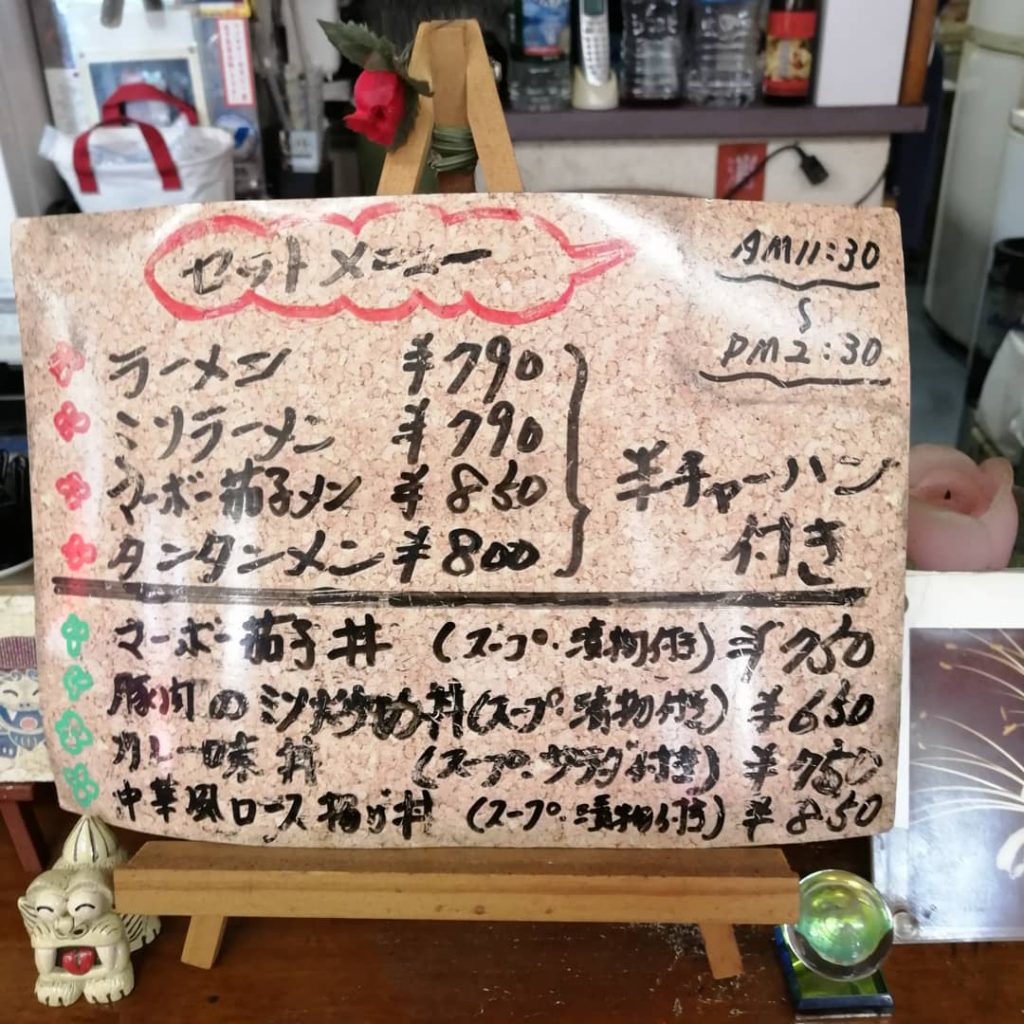 セットメニュー
AM11:30
〜
PM2:30
ラーメン ¥790
ミソラーメン ¥790
マーボー茄子メン ¥850
タンタンメン ¥800
半チャーハン
付き
マーボー茄子丼 (スープ・漬物付き) ¥750
豚肉のミソ炒め丼(スープ・漬物付き) ¥650
カレー味丼 (スープ・サラダ付き) ¥750
中華風ロース揚げ丼 (スープ・漬物付) ¥850